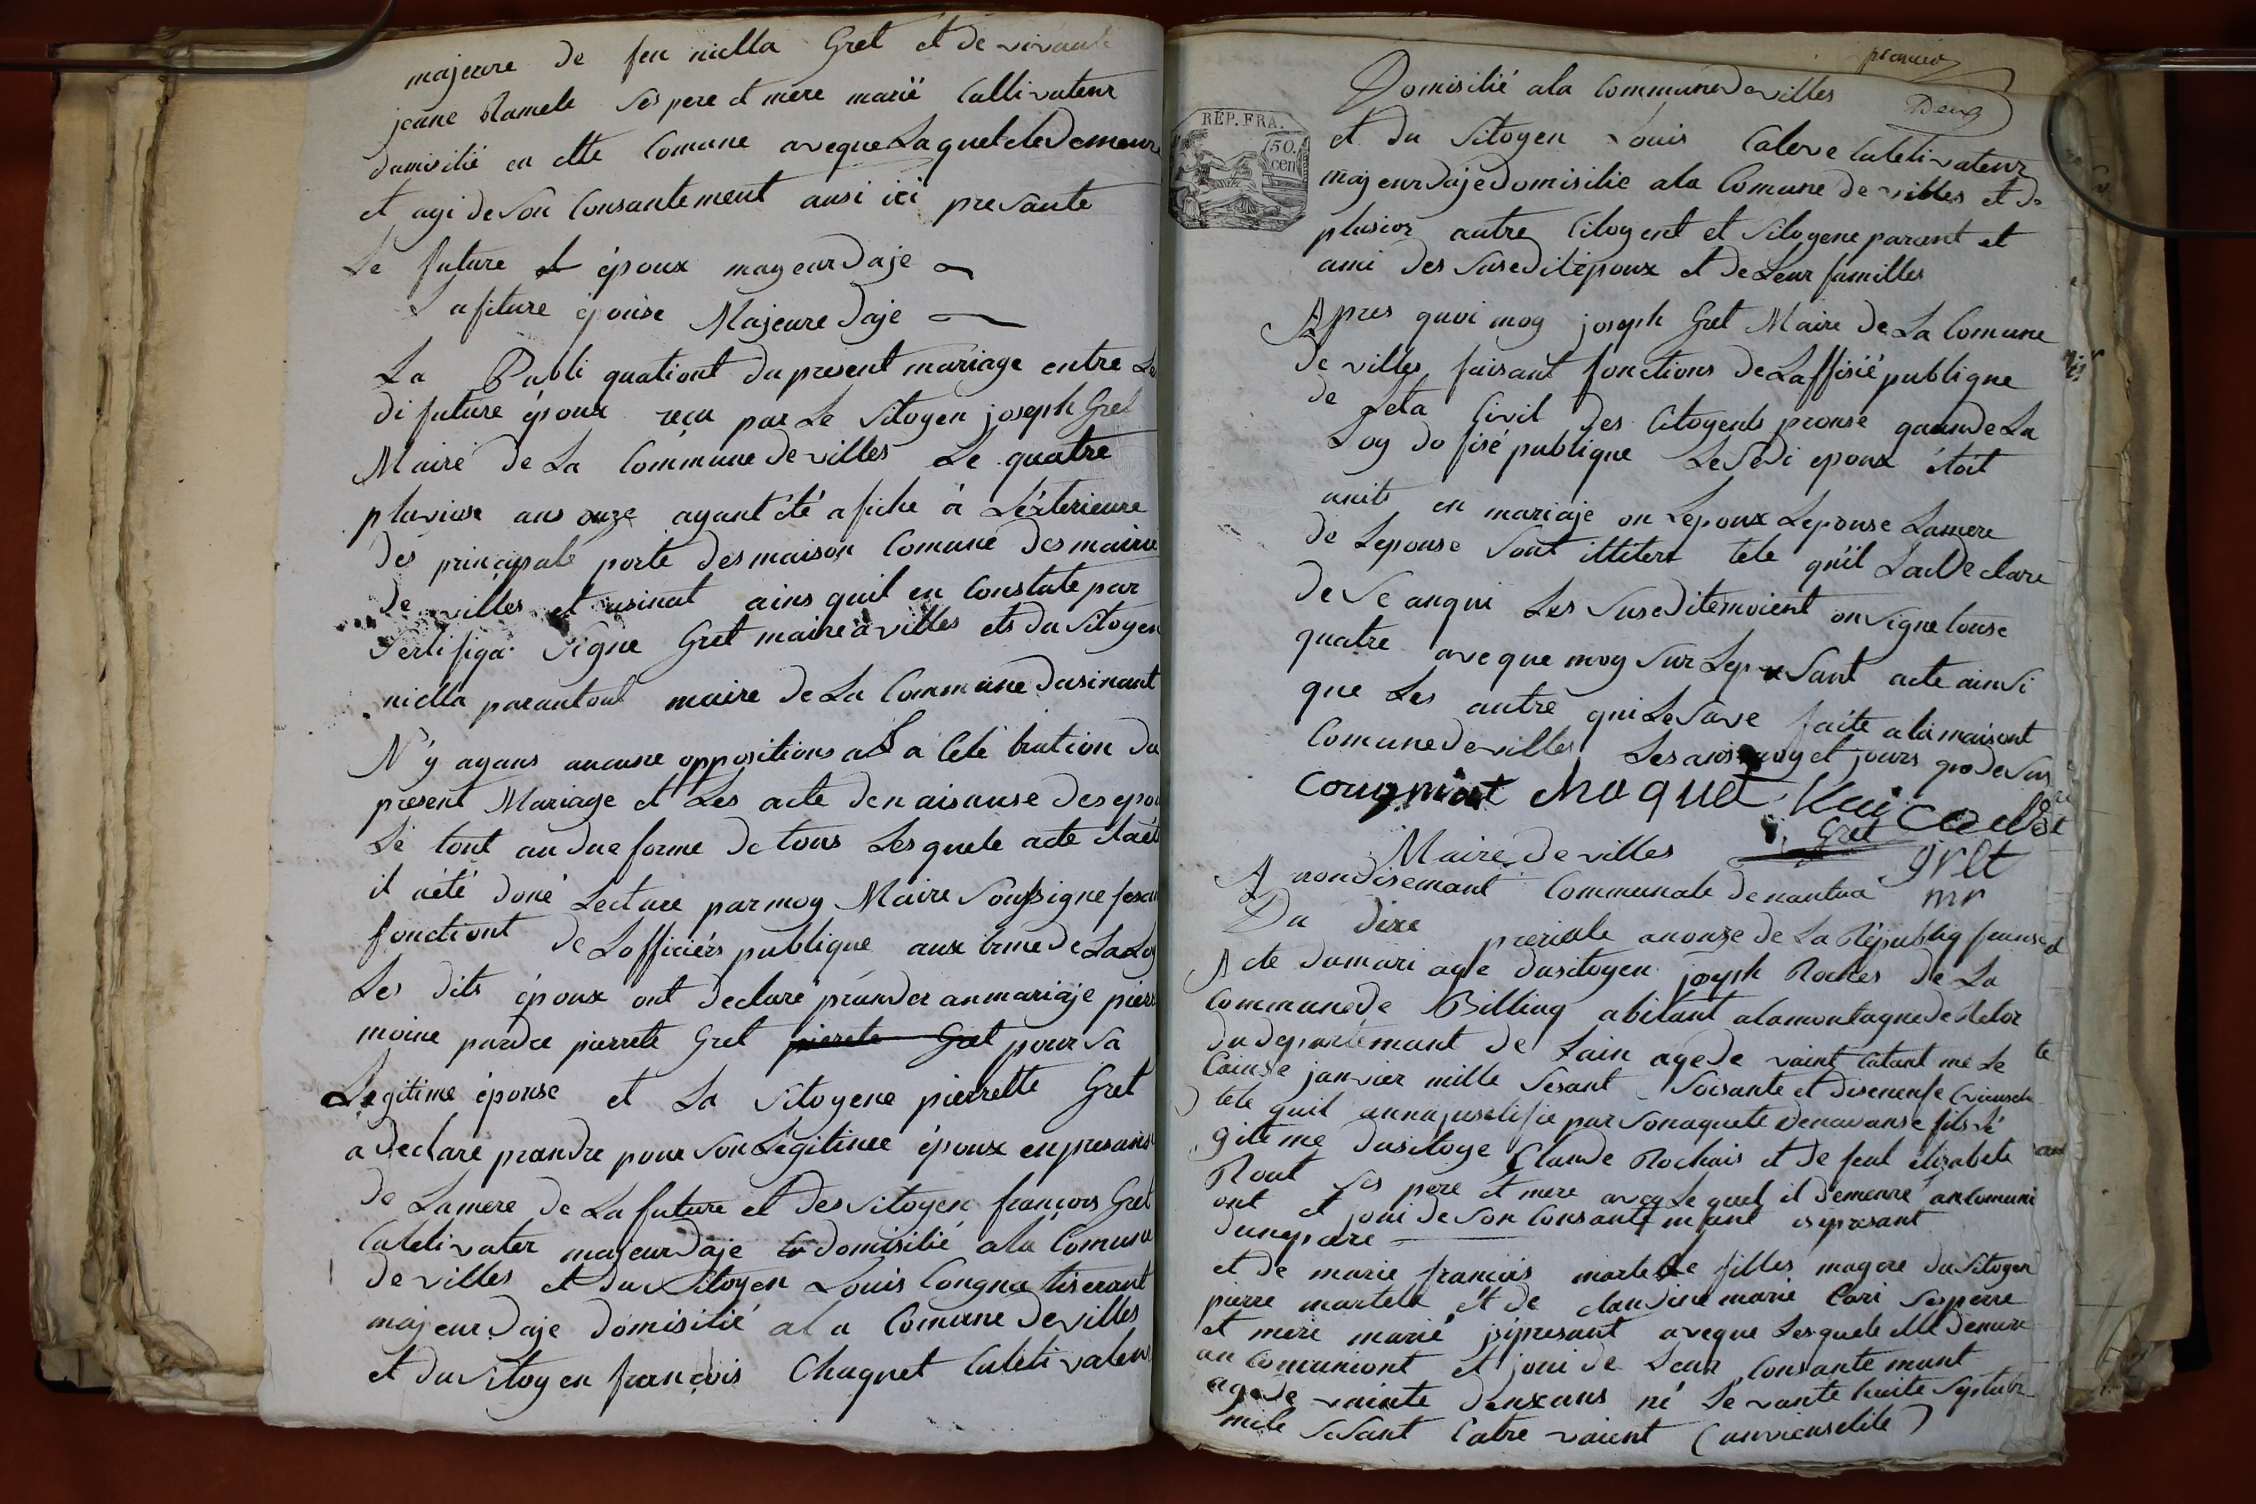 majeure de feu niella Gret et de vivante
jeane Ramele ses pere et mere marië Cultivateur
domisilié en cette Comune aveque Laquel ele Demeure
et agi de son Consantement ausi ici presante
Le future et époux mageur daje
La future épouse Majeure daje
La Publi quationt du present mariage entre Le
di future époux reçu par Le Sitoyen joseph Gret
Maire de La Commune de villes Le quatre
pluviuse ans onze ayant été afiche à Léxterieure
des principale porte des maison Comune des mairie
de villes et usinat ains quil en Constate par
Sertifiga Signe Gret maire à villes et du Sitoyen
niella parantoul maire de La Commune dusinant
N'y ayans aucune oppositions a La Célé bration du
présent Mariage et Les acte de naisanse des epou
Le tout an due forme de tous Les quele acte
il a été doné Lecture par moy Maire Soussigne fesan
fonctiont de Lofficiérs publique aux terme de La Loy
Les dits époux ont declare prander an mariaje pierre
moine pardre pierrete Gret pierete Gret pour Sa
Legitime épouse et La Sitoyene pierrette Gret
a declaré prandre pour son Legitimee époux en presanse
de Lamere de La future et des Sitoyen françois Gret
Culetivater majeur daje domisilié ala Comune
de villes et du Sitoyen Louis Congna tiserant
majeur daje domisilié al a Comune de villes
et du Sitoyen françois Chaquet Culeti vateur
premier
Deux
Domisilié ala Commune de villes
RÉP. FRA.
50.
cen
et du Sitoyen Louis Caleve Culetivateur
majeur daje domisilie ala Comune de villes et de
plusior autre Citoyent et Sitoyene parent et
ami des Susedit époux et de Leur familles
Apres quoi moy joseph Gret Maire de La Comune
de villes faisant fonctions de Laffisié publique
de Leta Civil des Citoyents pronse quande La
Loy do fisé publique Le Sedi epoux étoit
units en mariaje on Lepoux Lepouse Lamere
de Lepouse Sont illitere tele qu'il Lon declare
de Se anqui Les Susedit temoient on Signe touse
quatre aveque moy Sur Le presant acte ainsi
que Les autre qui Le Save faite ala maisont
Comune de villes Les ans moy et jours que desus
Cougniat chaquet
Gret
Maire de villes
grett
mr
Arrondisemant Communale de nantua
Du dixe preriale an onze de La Républiq franse
Acte du mari age du Sitoyen joseph Roches de La
Commune de Billiaq abitant ala montagne de Retor
du departemant de Lain age de vaint Catant né Le
Cainse janvier mille Sesant Soisante et disenenfe (vieusete
tele quil an a jusetifie par Son aquete de nawanse fils Lé
gite me du Sitoye Claude Rochais et de feul élizabete
Rout Ses pere et mere aveq Le quel il demeure an Comuni
ont et joui de Son Consantemant isi presant
dun pere
et de marie françois martele filles magore du Sitoyen
pierre martele et de claudine marie Cari Ses perre
et mere marié isi presant aveque Les quele elle demure
an Comuniont et joui de Leur Consante mant
age de vainte deux ans né Le vante huite Septabr
mile Sesant Catre vaient (anvieusetile)